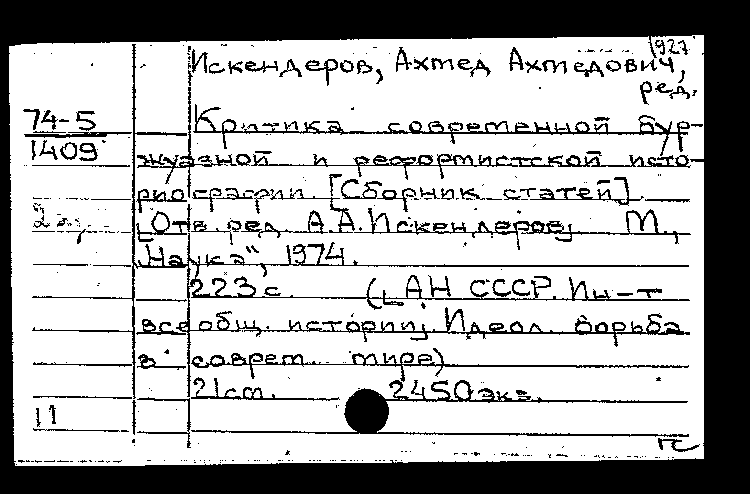 1927
Искендеров, Ахмед Ахмедович,
ред.
74-5
1409
Критика современной бур-
жуазной и реформистской исто-
риографии. [Сборник статей].
2э.,
[Отв. ред. А.А.Искендеров]. М.,
"Наука", 1974.
223 с. ([АН СССР. Ин-т
всеобщ. истории]. Идеол. борьба
в соврем. мире)
21см. 2450экз.
11